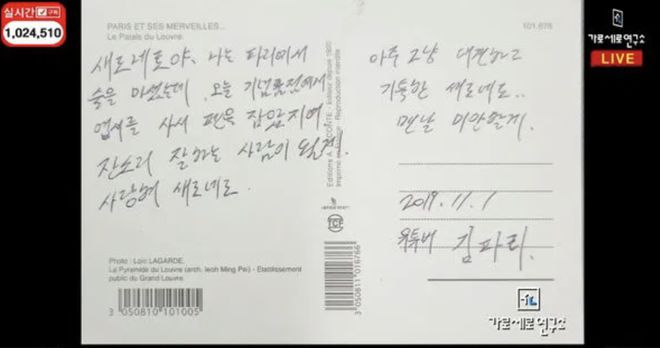 실시간 구독
1,024,510
PARIS ET SES MERVEILLES...
Le Palais du Louvre
101.678
가로세로연구소
LIVE
새로네로야. 나는 파리에서
술을 마셨는데. 오늘 기념품점에서
엽서를 사서 펜을 잡았지예
잔소리 잘하는 사람이
사랑해 새로네로.
아주 그냥 대견하고
기특한 새로네로..
맨날 미안할게.
2019. 11. 1
유튜버 김파리.
Photo : Loïc LAGARDE.
La Pyramide du Louvre (arch. Ieoh Ming Pei) - Etablissement
public du Grand Louvre.
3 050810 101005
Editions A. LECONTE - Editeur depuis 1920
Imprimé en - Reproduction interdite
3 050811 016766
가로세로연구소